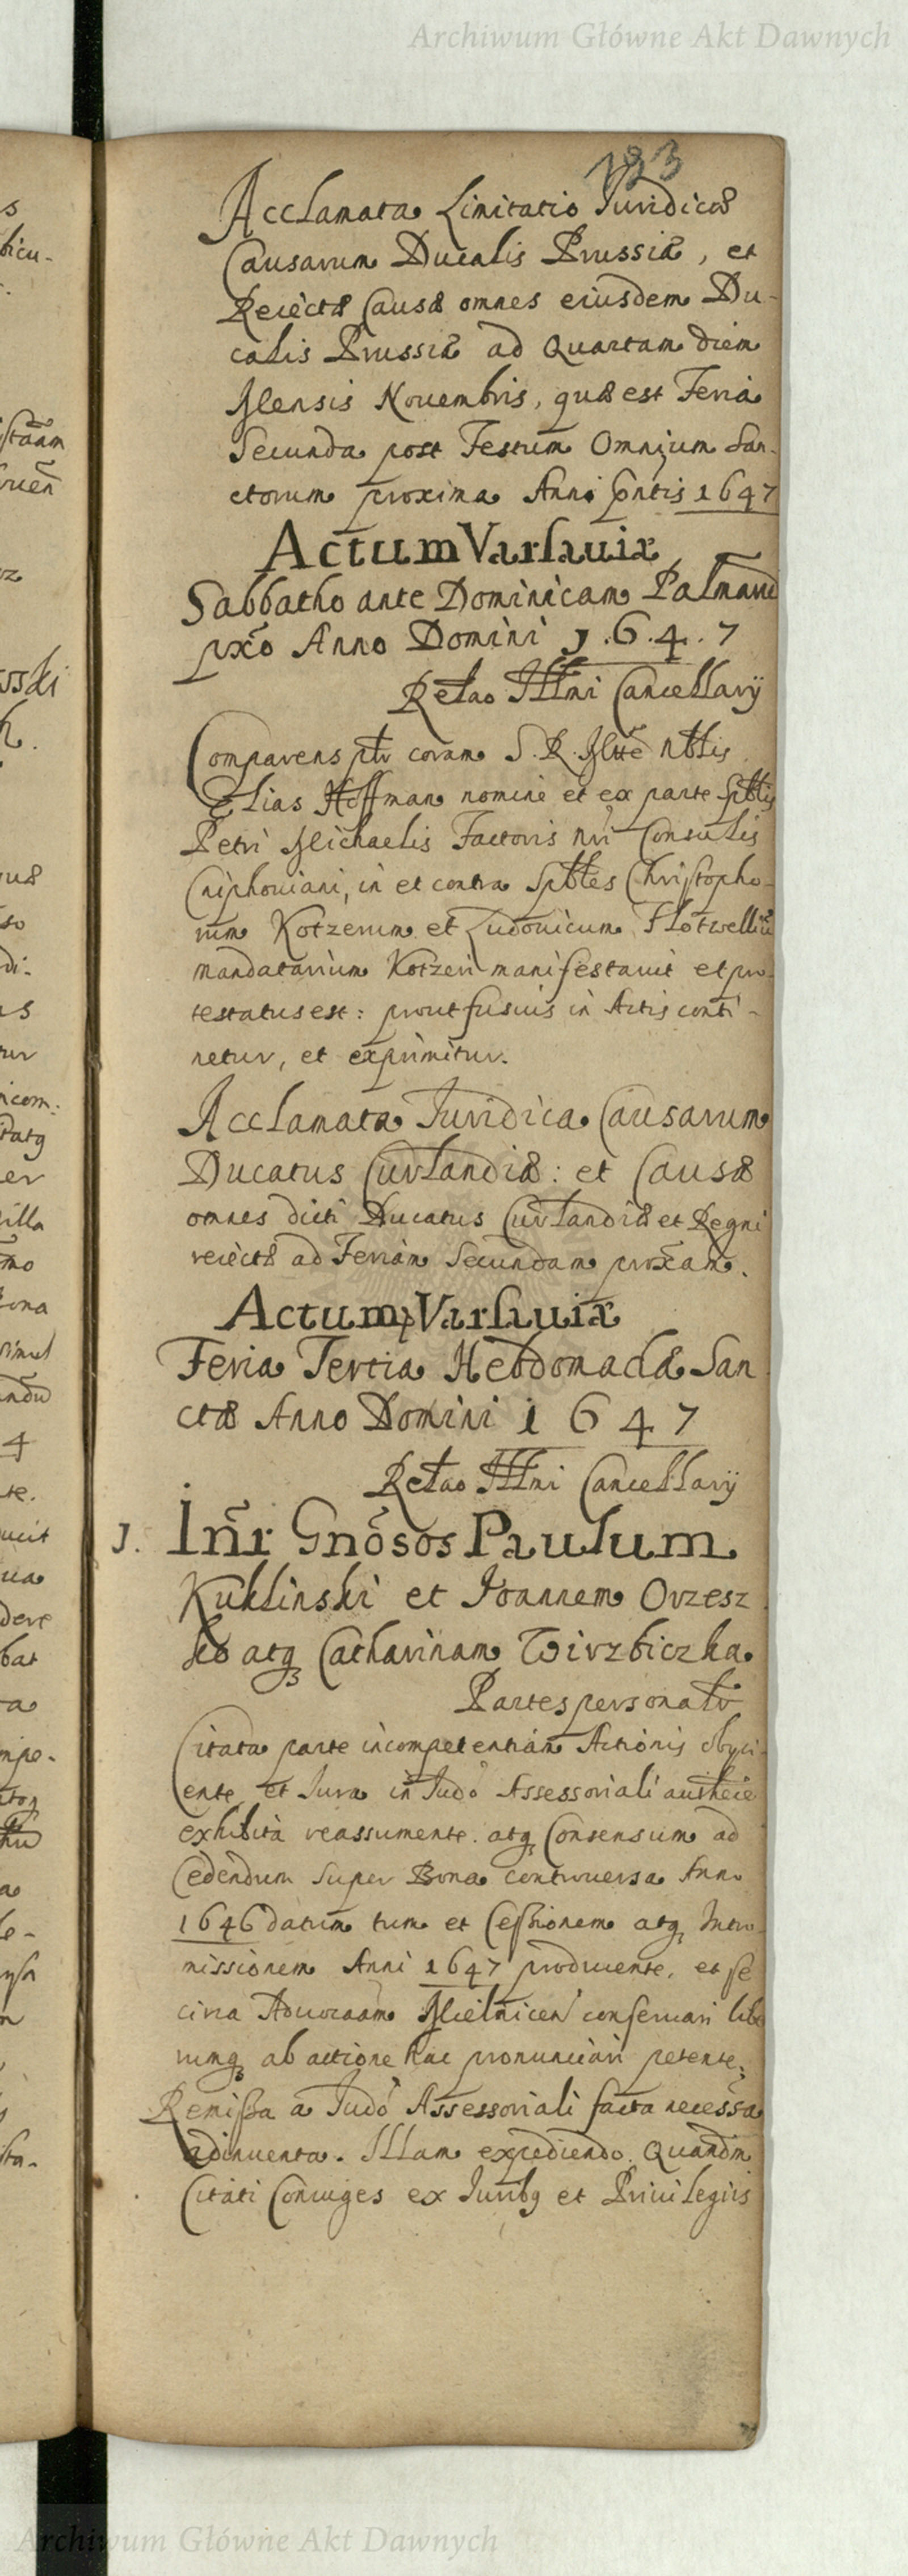 Archiwum Główne Akt Dawnych
133
Acclamata Limitatio Juridicæ
Causarum Ducalis Prussiæ, et
Reiectæ Causæ omnes eiusdem Du-
calis Prussiæ ad Quartam diem
Mensis Nouembris, quæ est Feria
Secunda post Festum Omnium San-
ctorum proxima Anni pñtis 1647
Actum Varsauiæ
Sabbatho ante Dominicam Palmarũ
pxõ Anno Domini 1.6.4.7
Relao Illmi Cancellarij
Comparens ptr coram S. R. Mtte Nblis
Elias Hoffman nomine et ex parte Spblis
Petri Michaelis Factoris nri Consulis
Cniphouiani, in et contra Spbles Christopho-
rum Kotzerum et Ludouicum Flotwelliũ
mandatarium Kotzeri manifestauit et pro-
testatus est: prout fusius in Actis conti-
netur, et exprimitur.
Acclamata Juridica Causarum
Ducatus Curlandiæ: et Causæ
omnes dicti Ducatus Curlandiæ et Regni
reiectæ ad Feriam Secundam proxãm.
Actum Varsauiæ
Feria Tertia Hebdomadæ San
ctæ Anno Domini 1647
Relao Illmi Cancellarij
1. Inr̃ Gnõsos Paulum
Kuklinski et Joannem Orzesz
ko atq Catharinam Wirzbiczka
Partes personalr
Citata parte incompetentiam Actionis obyci-
ente et Jura in Judõ Assessoriali
exhibita reassumente. atq Consensum ad
Cedendum super Bona controuersa Anno
1646 datum tum et Cessionem atq Intro-
missionem Anni 1647 producente, et se
circa Aduocaam Mielnicen conseruari libe
rumq ab actione hac pronunciari petente,
Remissa a Judõ Assessoriali facta necessa
adinuenta. Illam expediendo. Quandm
Citati Coniuges ex Juribq et Priuilegijs
Archiwum Główne Akt Dawnych